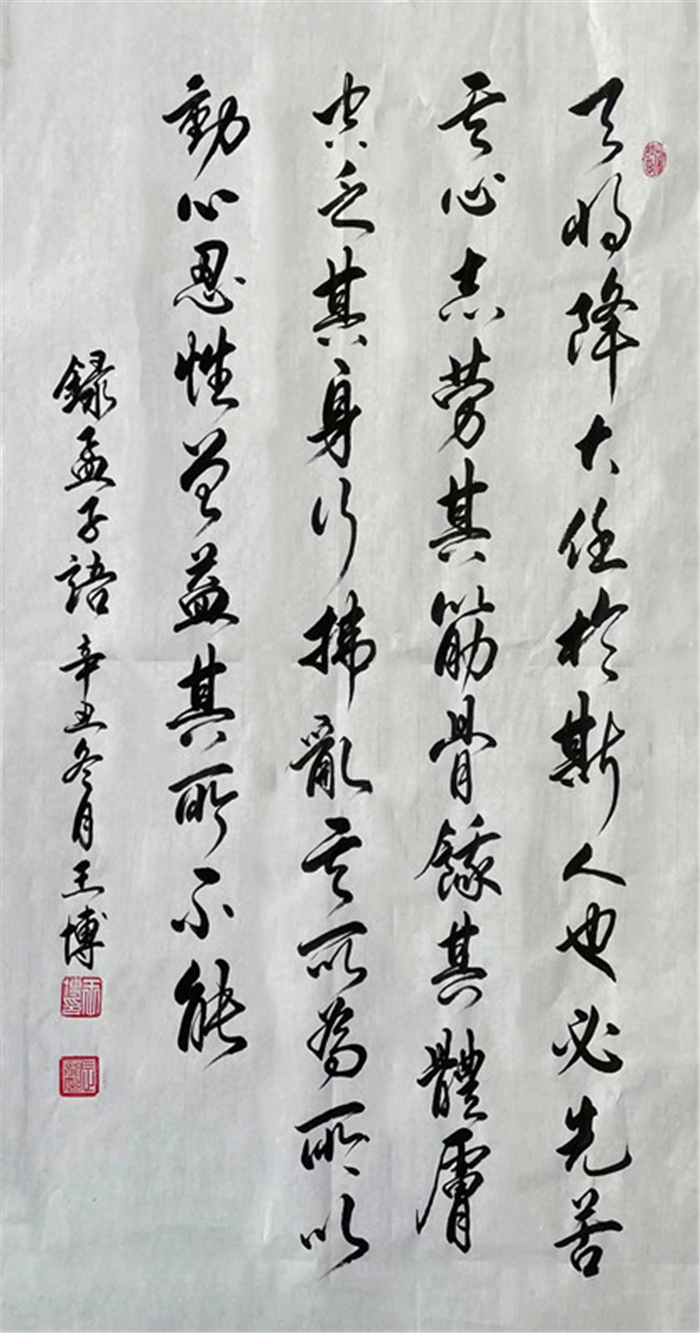 天将降大任於斯人也必先苦
其心志劳其筋骨餓其體膚
空乏其身行拂亂其所為所以
動心忍性曾益其所不能
録孟子語 辛丑冬月王博